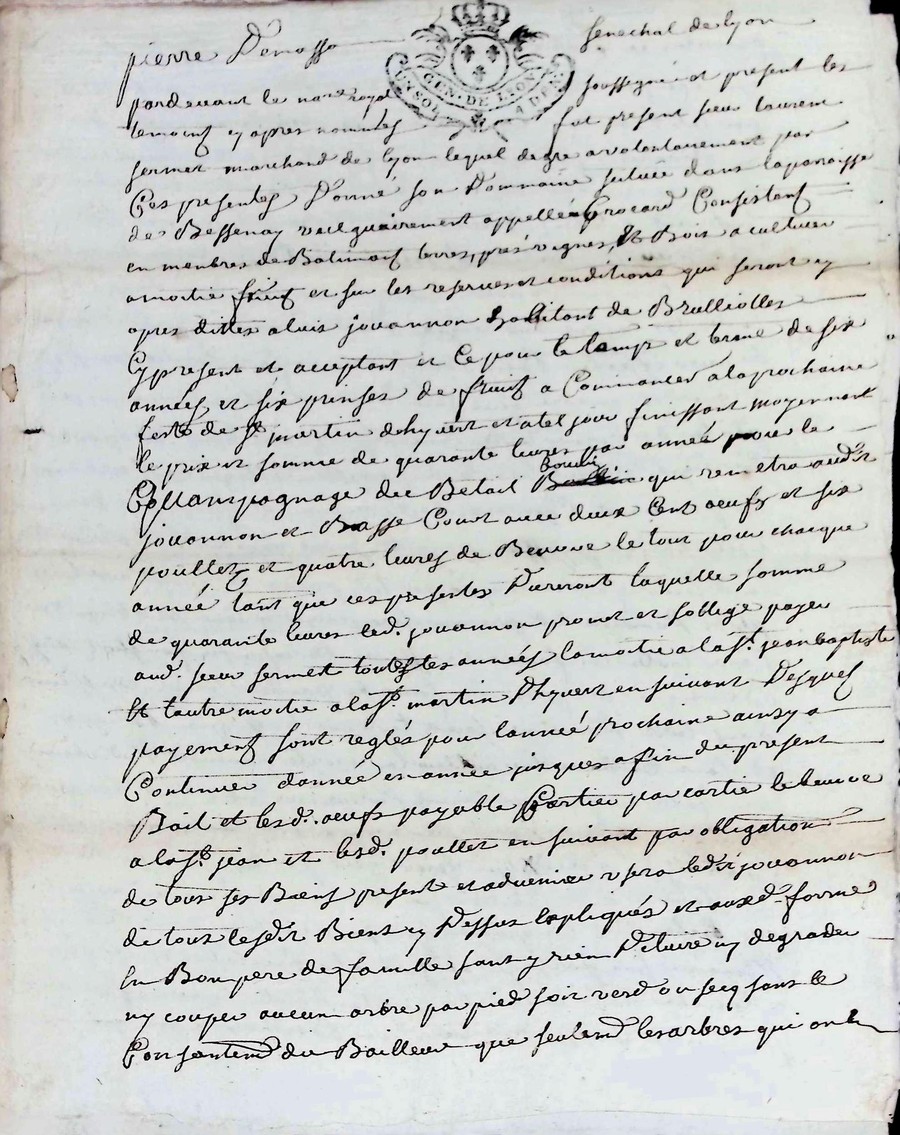 pierre Demasso senechal de lyon
GEN. DE LYON
pardevant le nore royal soussigné et present les
temoins cy apres nommés fut present sieur laurent
fermet marchand de lyon lequel de gre a volontairement par
Ces presentes Donné son Dommaine scituée dans la paroisse
de Bessenay vulguairement appellée Brocard Consistent
en menbres de Batimans terres, prés vignes, Et Bois a cultiver
a moitie fruits et sur les reserves et conditions qui seront cy
apres dittes a luis jouannon habitant de Brulliolles
Cy present et acceptant et Ce pour le temps et terme de six
années et six prinses de fruits a Commancer a la prochaine
feste de st martin dhyvert et a tel jour finissant moyennent
le prix et somme de quarante livres par année pour le
du Betail bouvin qui remetra audt
jouannon et Basse Court avec deux Cent oeufs et six
poullets et quatre livres de Beurre le tout pour chaque
année tant que ces presentes Dureront laquelle somme
de quarante livres led. jouannon promet et soblige payer
aud. sieur fermet touttes les années la moitie a la st. jean baptiste
Et lautre moitie a la st. martin Dhyvert en suivant Desquels
payements sont reglés pour lannée prochaine ainsy a
Continuer dannée en année jusques a fin du present
Bail et lesd. oeufs payable Cartier par cartier le beurre
a la st. jean et lesd. poullets en suivant par obligation
de tous ses Biens present et advenire usera ledt jouannon
de tous lesdt Bient cy Dessus Expliqués et ausd. forme
En Bon pere de famille sans y rien Detruire ny degrader
ny couper aucun arbre par pied soit verd ou secq sans le
Consentemt du Bailleur que seulemt les arbres qui ont